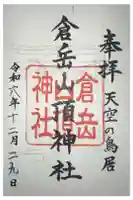 奉拝
天空の鳥居
倉岳山頂神社
倉岳
神社
令和六年十二月二九日